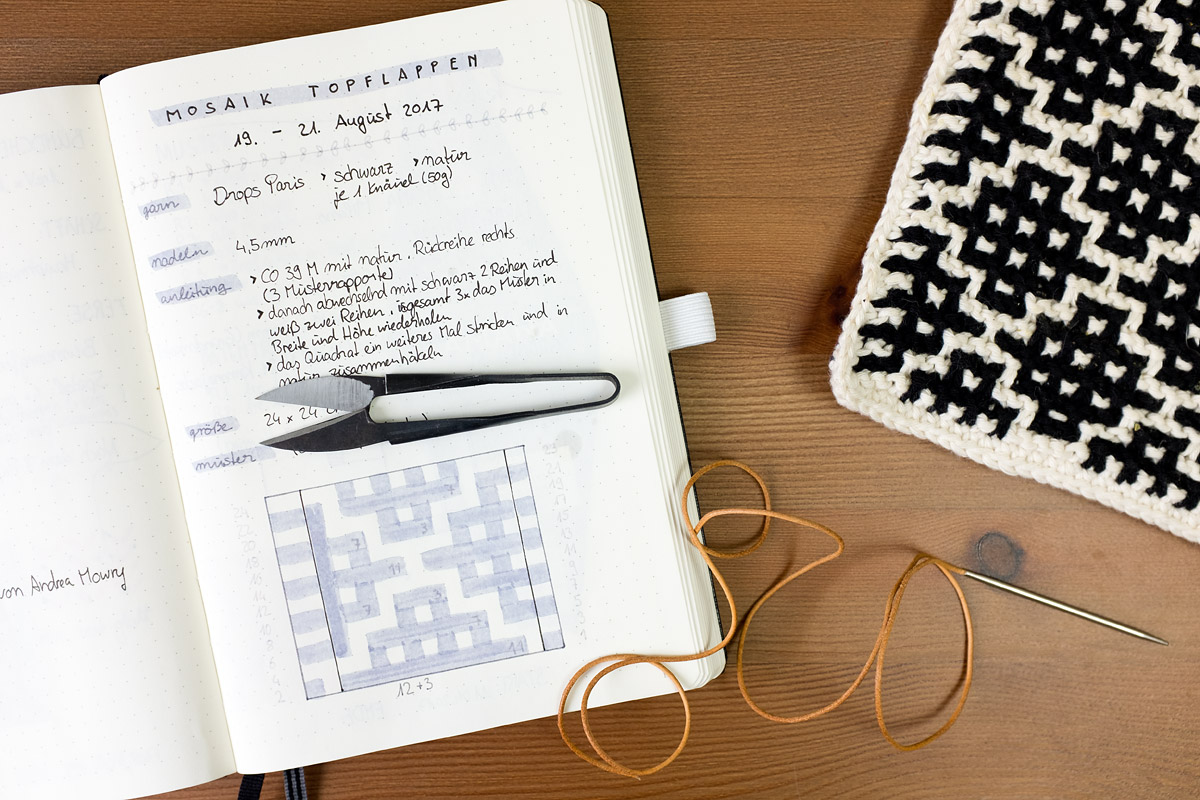 MOSAIK TOPFLAPPEN
19. – 21. August 2017
garn Drops Paris › schwarz › natur
je 1 Knäuel (50g)
nadeln 4,5mm
anleitung › CO 39 M mit natur. Rückreihe rechts
(3 Musterrapporte)
› danach abwechselnd mit schwarz 2 Reihen und
weiß zwei Reihen, insgesamt 3x das Muster in
Breite und Höhe wiederholen
› das Quadrat ein weiteres Mal stricken und in
natur zusammenhäkeln
größe 24 x 24
muster
7
3
11
7
3
11
12+3
von Andrea Mowry